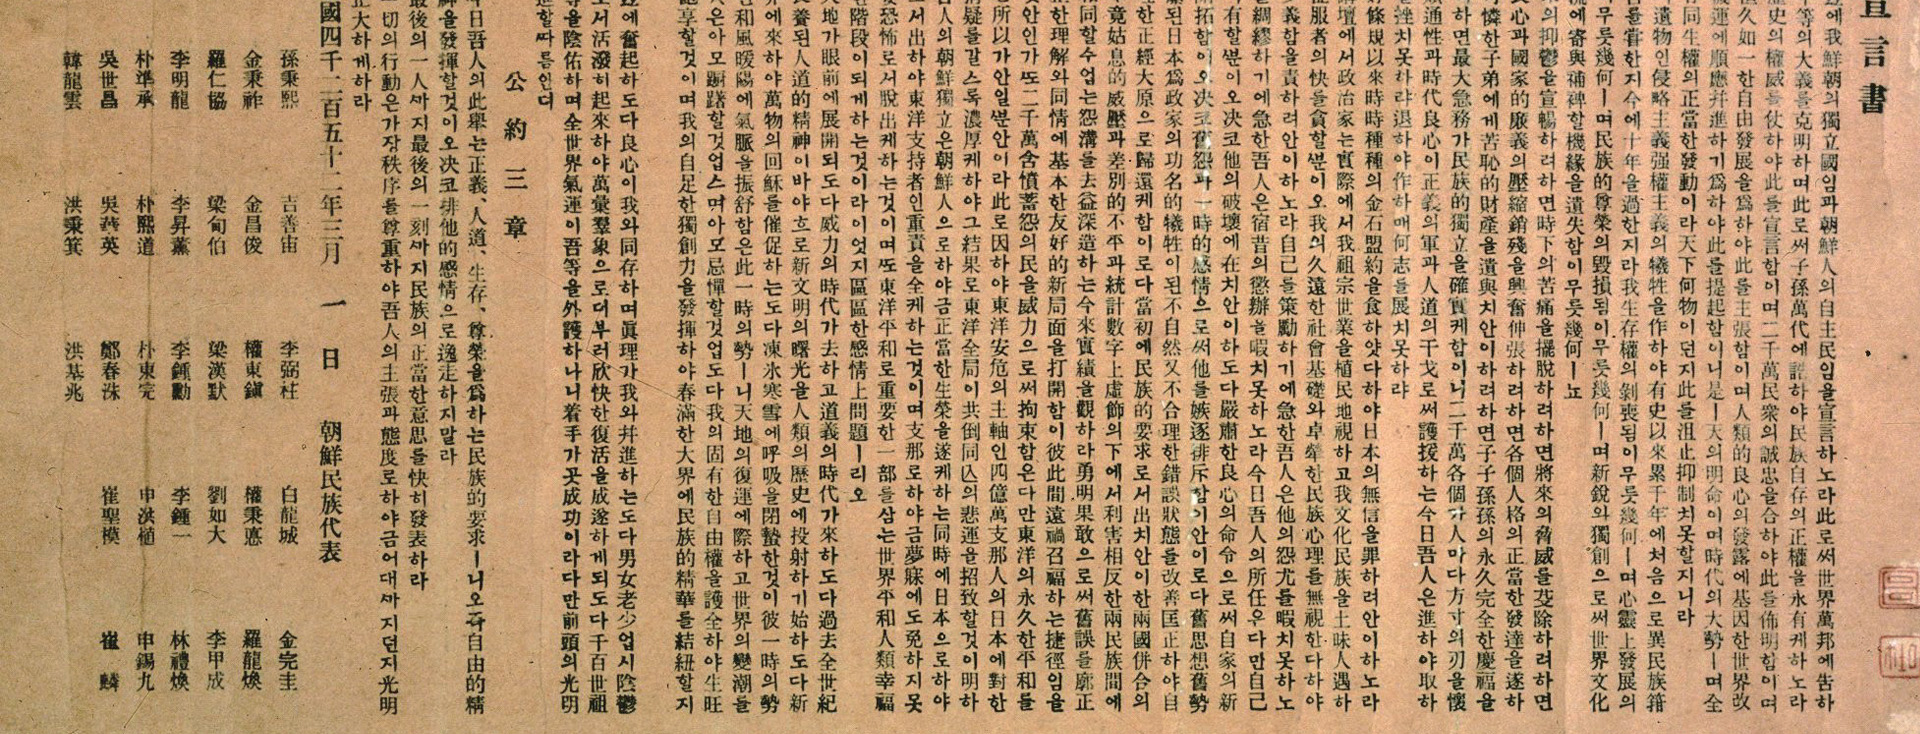 宣言書
玆에我鮮朝의獨立國임과朝鮮人의自主民임을宣言하노라此로써世界萬邦에告하
平等의大義를克明하며此로써子孫萬代에誥하야民族自存의正權을永有케하노라
歷史의權威를仗하야此를宣言함이며二千萬民衆의誠忠을合하야此를佈明함이며
恒久如一한自由發展을爲하야此를主張함이며人類的良心의發露에基因한世界改
機運에順應幷進하기爲하야此를提起함이니是ㅣ天의明命이며時代의大勢ㅣ며全
存同生權의正當한發動이라天下何物이던지此를沮止抑制치못할지니라
遺物인侵略主義强權主義의犧牲을作하야有史以來累千年에처음으로異民族箝
痛을嘗한지今에十年을過한지라我生存權의剝喪됨이무릇幾何ㅣ며心靈上發展의
무릇幾何ㅣ며民族的尊榮의毁損됨이무릇幾何ㅣ며新銳와獨創으로써世界文化
流에寄與補裨할機緣을遺失함이무릇幾何ㅣ뇨
의抑鬱을宣暢하려하면時下의苦痛을擺脫하려하면將來의脅威를芟除하려하면
良心과國家的廉義의壓縮銷殘을興奮伸張하려하면各個人格의正當한發達을遂하
可憐한子弟에게苦恥的財產을遺與치안이하려하면子子孫孫의永久完全한慶福을
하면最大急務가民族的獨立을確實케함이니二千萬各個가人마다方寸의刃을懷
類通性과時代良心이正義의軍과人道의干戈로써護援하는今日吾人은進하야取하
挫치못하랴退하야作하매何志를展치못하랴
條規以來時時種種의金石盟約을食하얏다하야日本의無信을罪하려안이하노라
講壇에서政治家는實際에서我祖宗世業을植民地視하고我文化民族을土昧人遇하
征服者의快를貪할뿐이오我의久遠한社會基礎와卓犖한民族心理를無視한다하야
義함을責하려안이하노라自己를策勵하기에急한吾人은他의怨尤를暇치못하노
綢繆하기에急한吾人은宿昔의懲辦을暇치못하노라今日吾人의所任은다만自己
有할뿐이오決코他의破壞에在치안이하도다嚴肅한良心의命令으로써自家의新
拓함이오決코舊怨과一時的感情으로써他를嫉逐排斥함이안이로다舊思想舊勢
된日本爲政家의功名的犧牲이된不自然又不合理한錯誤狀態를改善匡正하야自
한正經大原으로歸還케함이로다當初에民族的要求로서出치안이한兩國倂合의
竟姑息的威壓과差別的不平과統計數字上虛飾의下에서利害相反한兩民族間에
同할수업는怨溝를去益深造하는今來實績을觀하라勇明果敢으로써舊誤를廓正
한理解와同情에基本한友好的新局面을打開함이彼此間遠禍召福하는捷徑임을
안인가또二千萬含憤蓄怨의民을威力으로써拘束함은다만東洋의永久한平和를
所以가안일뿐안이라此로因하야東洋安危의主軸인四億萬支那人의日本에對한
疑를갈스록濃厚케하야그結果로東洋全局이共倒同亡의悲運을招致할것이明하
人의朝鮮獨立은朝鮮人으로하야금正當한生榮을遂케하는同時에日本으로하야
서出하야東洋支持者인重責을全케하는것이며支那로하야금夢寐에도免하지못
恐怖로서脫出케하는것이며또東洋平和로重要한一部를삼는世界平和人類幸福
한階段이되게하는것이라이엇지區區한感情上問題ㅣ리오
天地가眼前에展開되도다威力의時代가去하고道義의時代가來하도다過去全世紀
長養된人道的精神이바야흐로新文明의曙光을人類의歷史에投射하기始하도다新
에來하야萬物의回蘇를催促하는도다凍氷寒雪에呼吸을閉蟄한것이彼一時의勢
和風暖陽에氣脈을振舒함은此一時의勢ㅣ니天地의復運에際하고世界의變潮를
은아모躕躇할것업스며아모忌憚할것업도다我의固有한自由權을護全하야生旺
享할것이며我의自足한獨創力을發揮하야春滿한大界에民族的精華를結紐할지
에奮起하도다良心이我와同存하며眞理가我와幷進하는도다男女老少업시陰鬱
로서活潑히起來하야萬彙羣象으로더부러欣快한復活을成遂하게되도다千百世祖
等을陰佑하며全世界氣運이吾等을外護하나니着手가곳成功이라다만前頭의光明
進할따름인뎌
公約三章
今日吾人의此擧는正義、人道、生存、尊榮을爲하는民族的要求ㅣ니오즉自由的精
神을發揮할것이오決코排他的感情으로逸走하지말라
最後의一人까지最後의一刻까지民族의正當한意思를快히發表하라
一切의行動은가장秩序를尊重하야吾人의主張과態度로하야금어대까지던지光明
正大하게하라
國四千二百五十二年三月一日 朝鮮民族代表
孫秉熙 吉善宙 李弼柱 白龍城 金完圭
金秉祚 金昌俊 權東鎭 權秉悳 羅龍煥
羅仁協 梁甸伯 梁漢默 劉如大 李甲成
李明龍 李昇薰 李鍾勳 李鍾一 林禮煥
朴準承 朴熙道 朴東完 申洪植 申錫九
吳世昌 吳華英 鄭春洙 崔聖模 崔麟
韓龍雲 洪秉箕 洪基兆